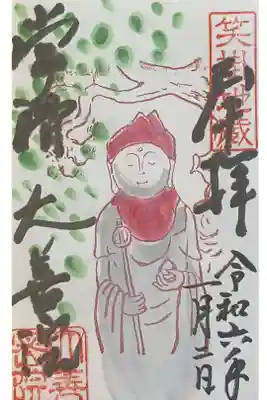 笑掛地蔵
奉拝
令和六年
一月二日
常滑 大善院